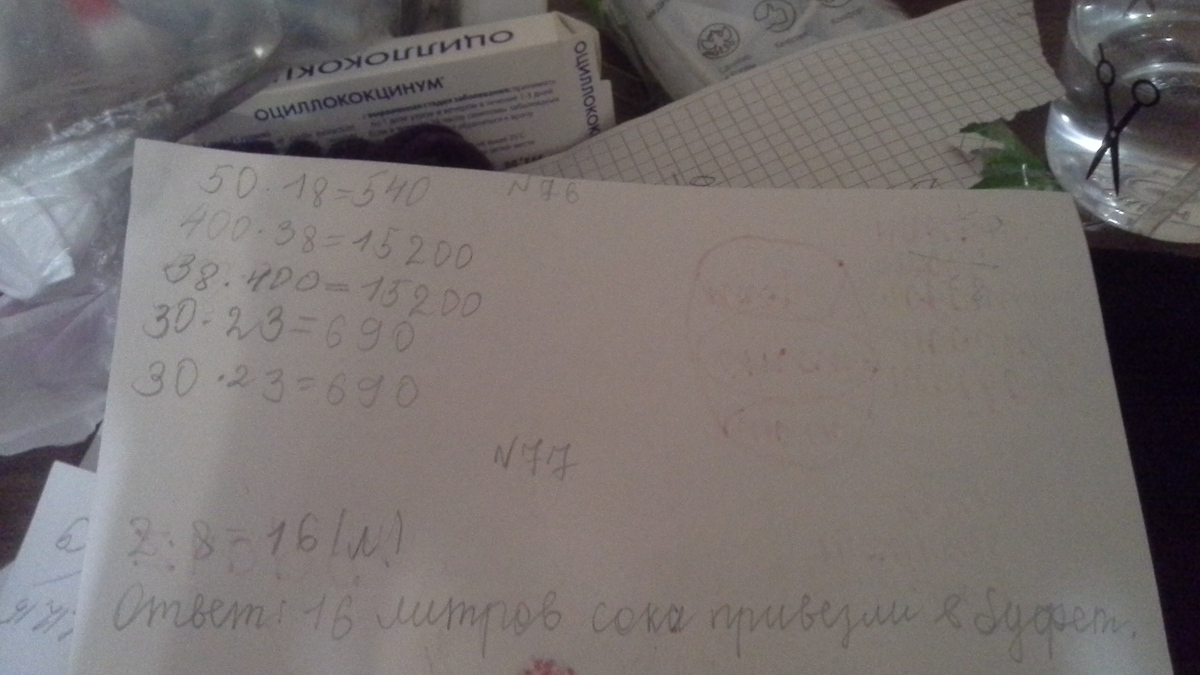 ОЦИЛЛОКОК
ОЦИЛЛОКОКЦИНУМ
ОЦИЛЛОКОК
N76
50·18=540
400·38=15200
38·400=15200
30·23=690
30·23=690
N77
2·8=16(л)
Ответ: 16 литров сока привезли в буфет.